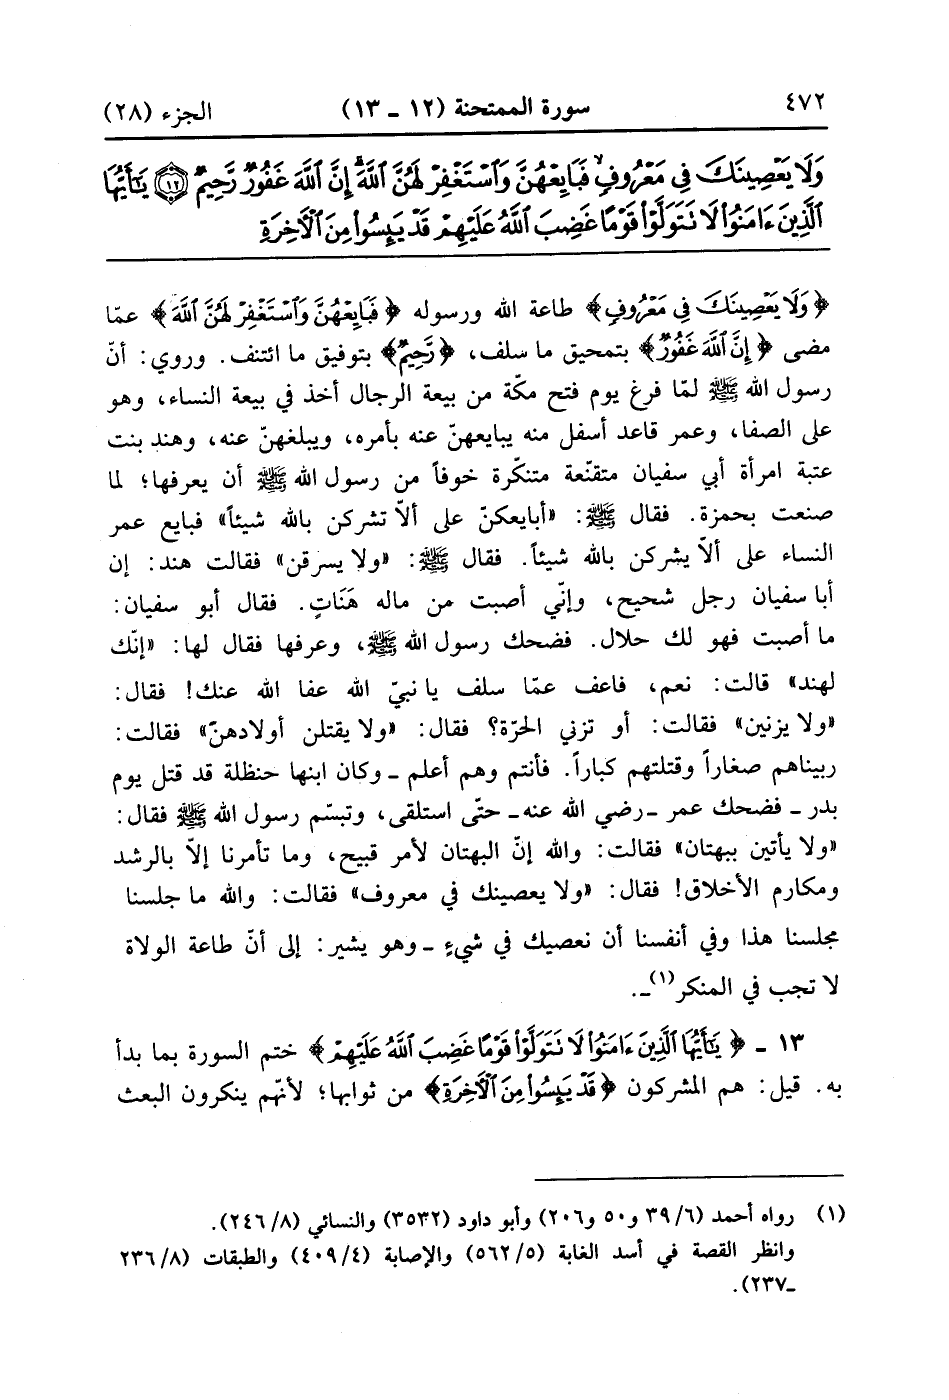 ٤٧٢ سورة الممتحنة (١٢ ـ ١٣) الجزء (٢٨)
وَلَا يَعْصِينَكَ فِي مَعْرُوفٍ ۙ فَبَايِعْهُنَّ وَٱسْتَغْفِرْ لَهُنَّ ٱللَّهَ ۖ إِنَّ ٱللَّهَ غَفُورٌ رَّحِيمٌ ۝١٢ يَٰٓأَيُّهَا
ٱلَّذِينَ ءَامَنُوا۟ لَا تَتَوَلَّوْا۟ قَوْمًا غَضِبَ ٱللَّهُ عَلَيْهِمْ قَدْ يَئِسُوا۟ مِنَ ٱلْءَاخِرَةِ
﴿وَلَا يَعْصِينَكَ فِي مَعْرُوفٍ﴾ طاعة الله ورسوله ﴿فَبَايِعْهُنَّ وَٱسْتَغْفِرْ لَهُنَّ ٱللَّهَ﴾ عمّا
مضى ﴿إِنَّ ٱللَّهَ غَفُورٌ﴾ بتمحيق ما سلف، ﴿رَّحِيمٌ﴾ بتوفيق ما ائتنف. وروي: أنّ
رسول الله ﷺ لمّا فرغ يوم فتح مكّة من بيعة الرجال أخذ في بيعة النساء، وهو
على الصفا، وعمر قاعد أسفل منه يبايعهنّ عنه بأمره، ويبلغهنّ عنه، وهند بنت
عتبة امرأة أبي سفيان متقنّعة متنكّرة خوفاً من رسول الله ﷺ أن يعرفها؛ لما
صنعت بحمزة. فقال ﷺ: «أبايعكنّ على ألاّ تشركن بالله شيئاً» فبايع عمر
النساء على ألاّ يشركن بالله شيئاً. فقال ﷺ: «ولا يسرقن» فقالت هند: إن
أبا سفيان رجل شحيح، وإنّي أصبت من ماله هَنَاتٍ. فقال أبو سفيان:
ما أصبت فهو لك حلال. فضحك رسول الله ﷺ، وعرفها فقال لها: «إنّك
لهند» قالت: نعم، فاعف عمّا سلف يا نبيّ الله عفا الله عنك! فقال:
«ولا يزنين» فقالت: أو تزني الحرّة؟ فقال: «ولا يقتلن أولادهنّ» فقالت:
ربيناهم صغاراً وقتلتهم كباراً. فأنتم وهم أعلم ـ وكان ابنها حنظلة قد قتل يوم
بدر ـ فضحك عمر ـ رضي الله عنه ـ حتّى استلقى، وتبسّم رسول الله ﷺ فقال:
«ولا يأتين ببهتان» فقالت: والله إنّ البهتان لأمر قبيح، وما تأمرنا إلاّ بالرشد
ومكارم الأخلاق! فقال: «ولا يعصينك في معروف» فقالت: والله ما جلسنا
مجلسنا هذا وفي أنفسنا أن نعصيك في شيءٍ ـ وهو يشير: إلى أنّ طاعة الولاة
لا تجب في المنكر(١)ـ.
١٣ ـ ﴿يَٰٓأَيُّهَا ٱلَّذِينَ ءَامَنُوا۟ لَا تَتَوَلَّوْا۟ قَوْمًا غَضِبَ ٱللَّهُ عَلَيْهِمْ﴾ ختم السورة بما بدأ
به. قيل: هم المشركون ﴿قَدْ يَئِسُوا۟ مِنَ ٱلْءَاخِرَةِ﴾ من ثوابها؛ لأنّهم ينكرون البعث
(١) رواه أحمد (٦/ ٣٩ و٥٠ و٢٠٦) وأبو داود (٣٥٣٢) والنسائي (٨/ ٢٤٦).
وانظر القصة في أسد الغابة (٥/ ٥٦٢) والإصابة (٤/ ٤٠٩) والطبقات (٨/ ٢٣٦
ـ٢٣٧).